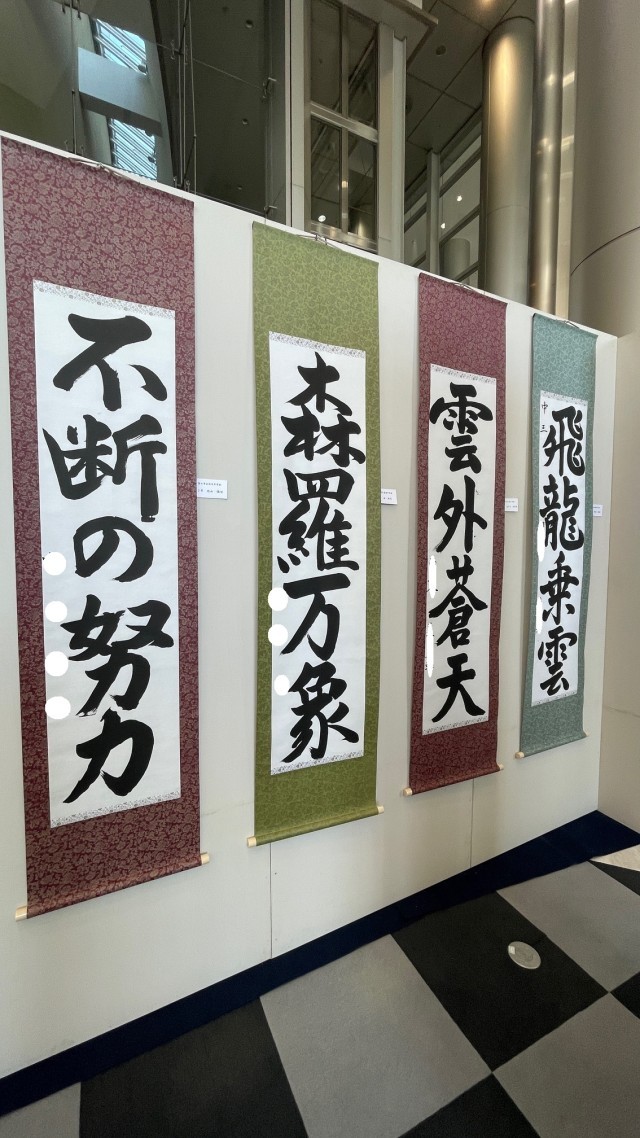 不断の努力
森羅万象
雲外蒼天
飛龍乗雲
中三